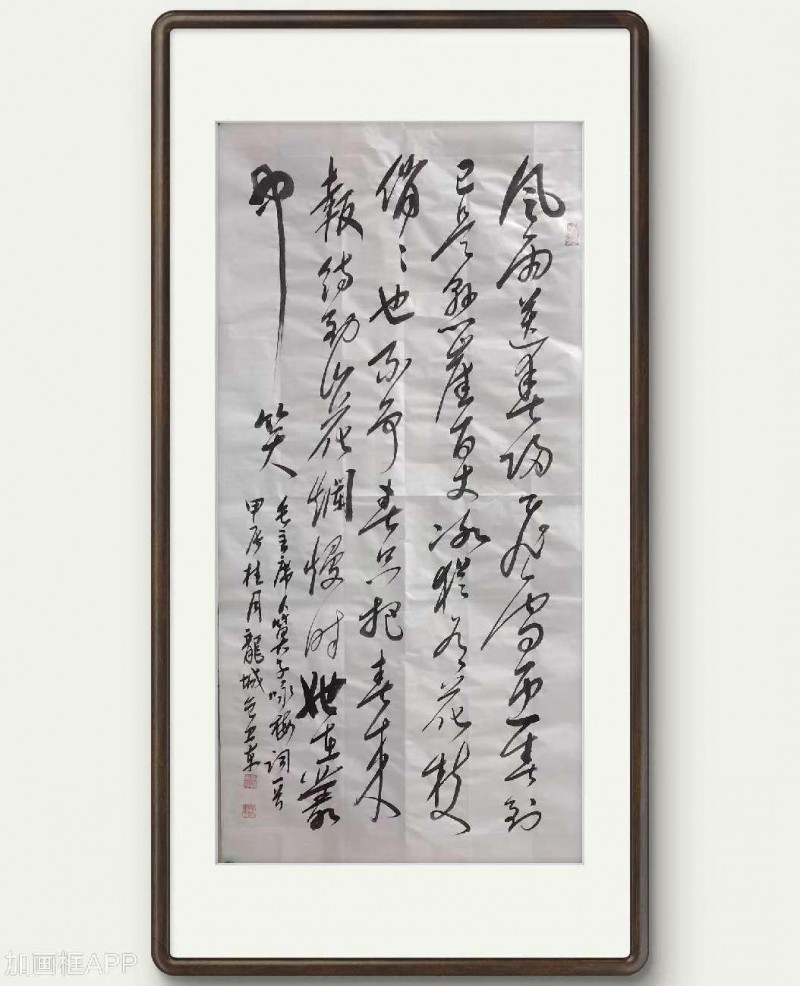 风雨送春归飞雪迎春到
已是悬崖百丈冰犹有花枝
俏〻也不争春只把春来
報待到山花爛熳时她在叢
中笑
毛主席卜算子咏梅词一首
甲辰桂月龍城
加画框APP